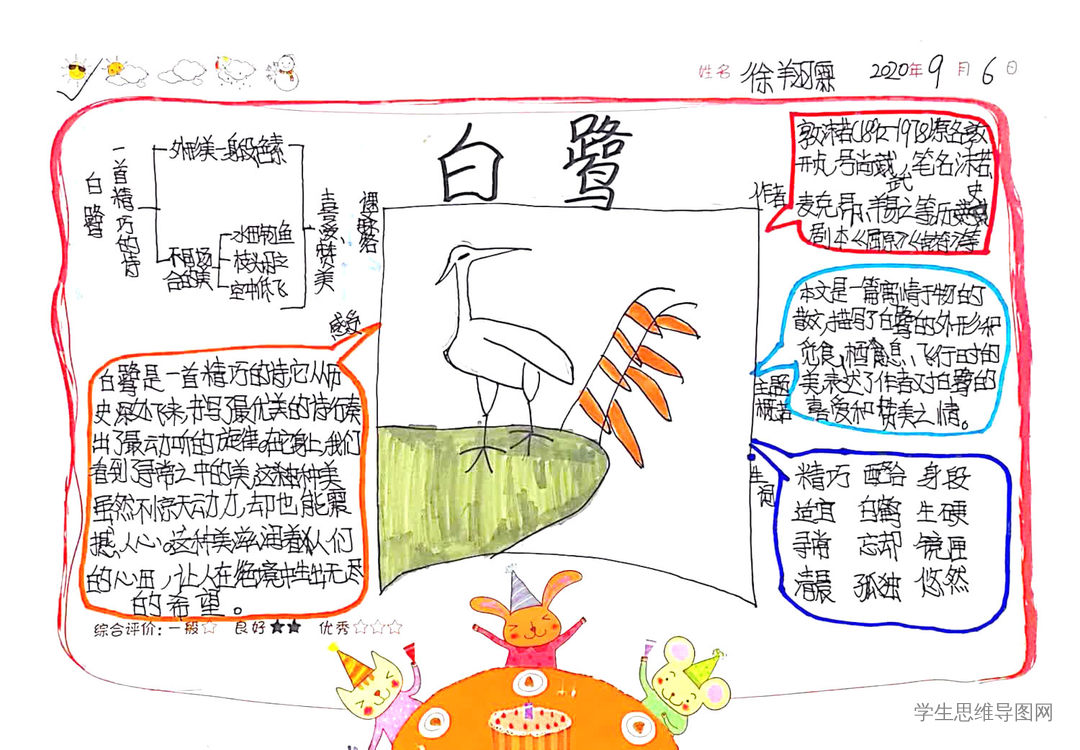 姓名 徐翔霖 2020年9月6日
白鹭
白鹭
一首精巧的诗
外形美 身段色素
不同场
合的美
水田钓鱼
枝头
空中低飞
喜爱、赞美
课文内容
作者
原名
开贞,号尚武,笔名沫若
武 史
麦克昂、易之等,历
剧本《屈原》等
主题
概括
本文是一篇寓情于物的
散文,描写了白鹭的外形和
觅食、栖息、飞行时的
美,表达了作者对白鹭的
喜爱和赞美之情。
感受
白鹭是一首精巧的诗,它从历
史深处飞来,书写了最优美的诗行,奏
出了最动听的旋律。在它身上,我们
看到了寻常之中的美,这种美
虽然不惊天动力,却也能震
撼人心。这种美滋润着人们
的心田,让人在绝境中生出无尽
的希望。
生词
精巧 配合 身段
适宜 白鹤 生硬
寻常 忘却 镜匣
清晨 孤独 悠然
综合评价:一般☆ 良好★★ 优秀☆☆☆
学生思维导图网